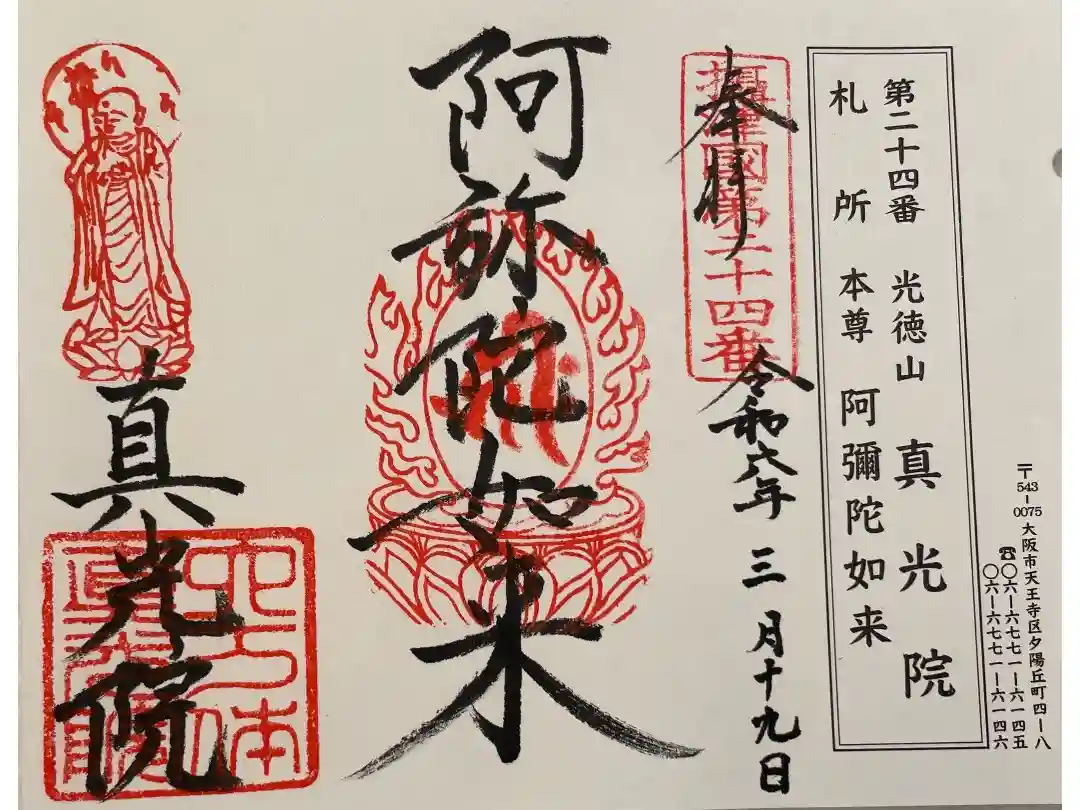 第二十四番 光徳山 真光院
札所 本尊 阿彌陀如来
〒543-0075 大阪市天王寺区夕陽丘町四-八
☎〇六-六七七一-六一四五
〇六-六七七一-六一四六
奉拝
摂津國第二十四番
令和六年 三月十九日
阿弥陀如来
真光院